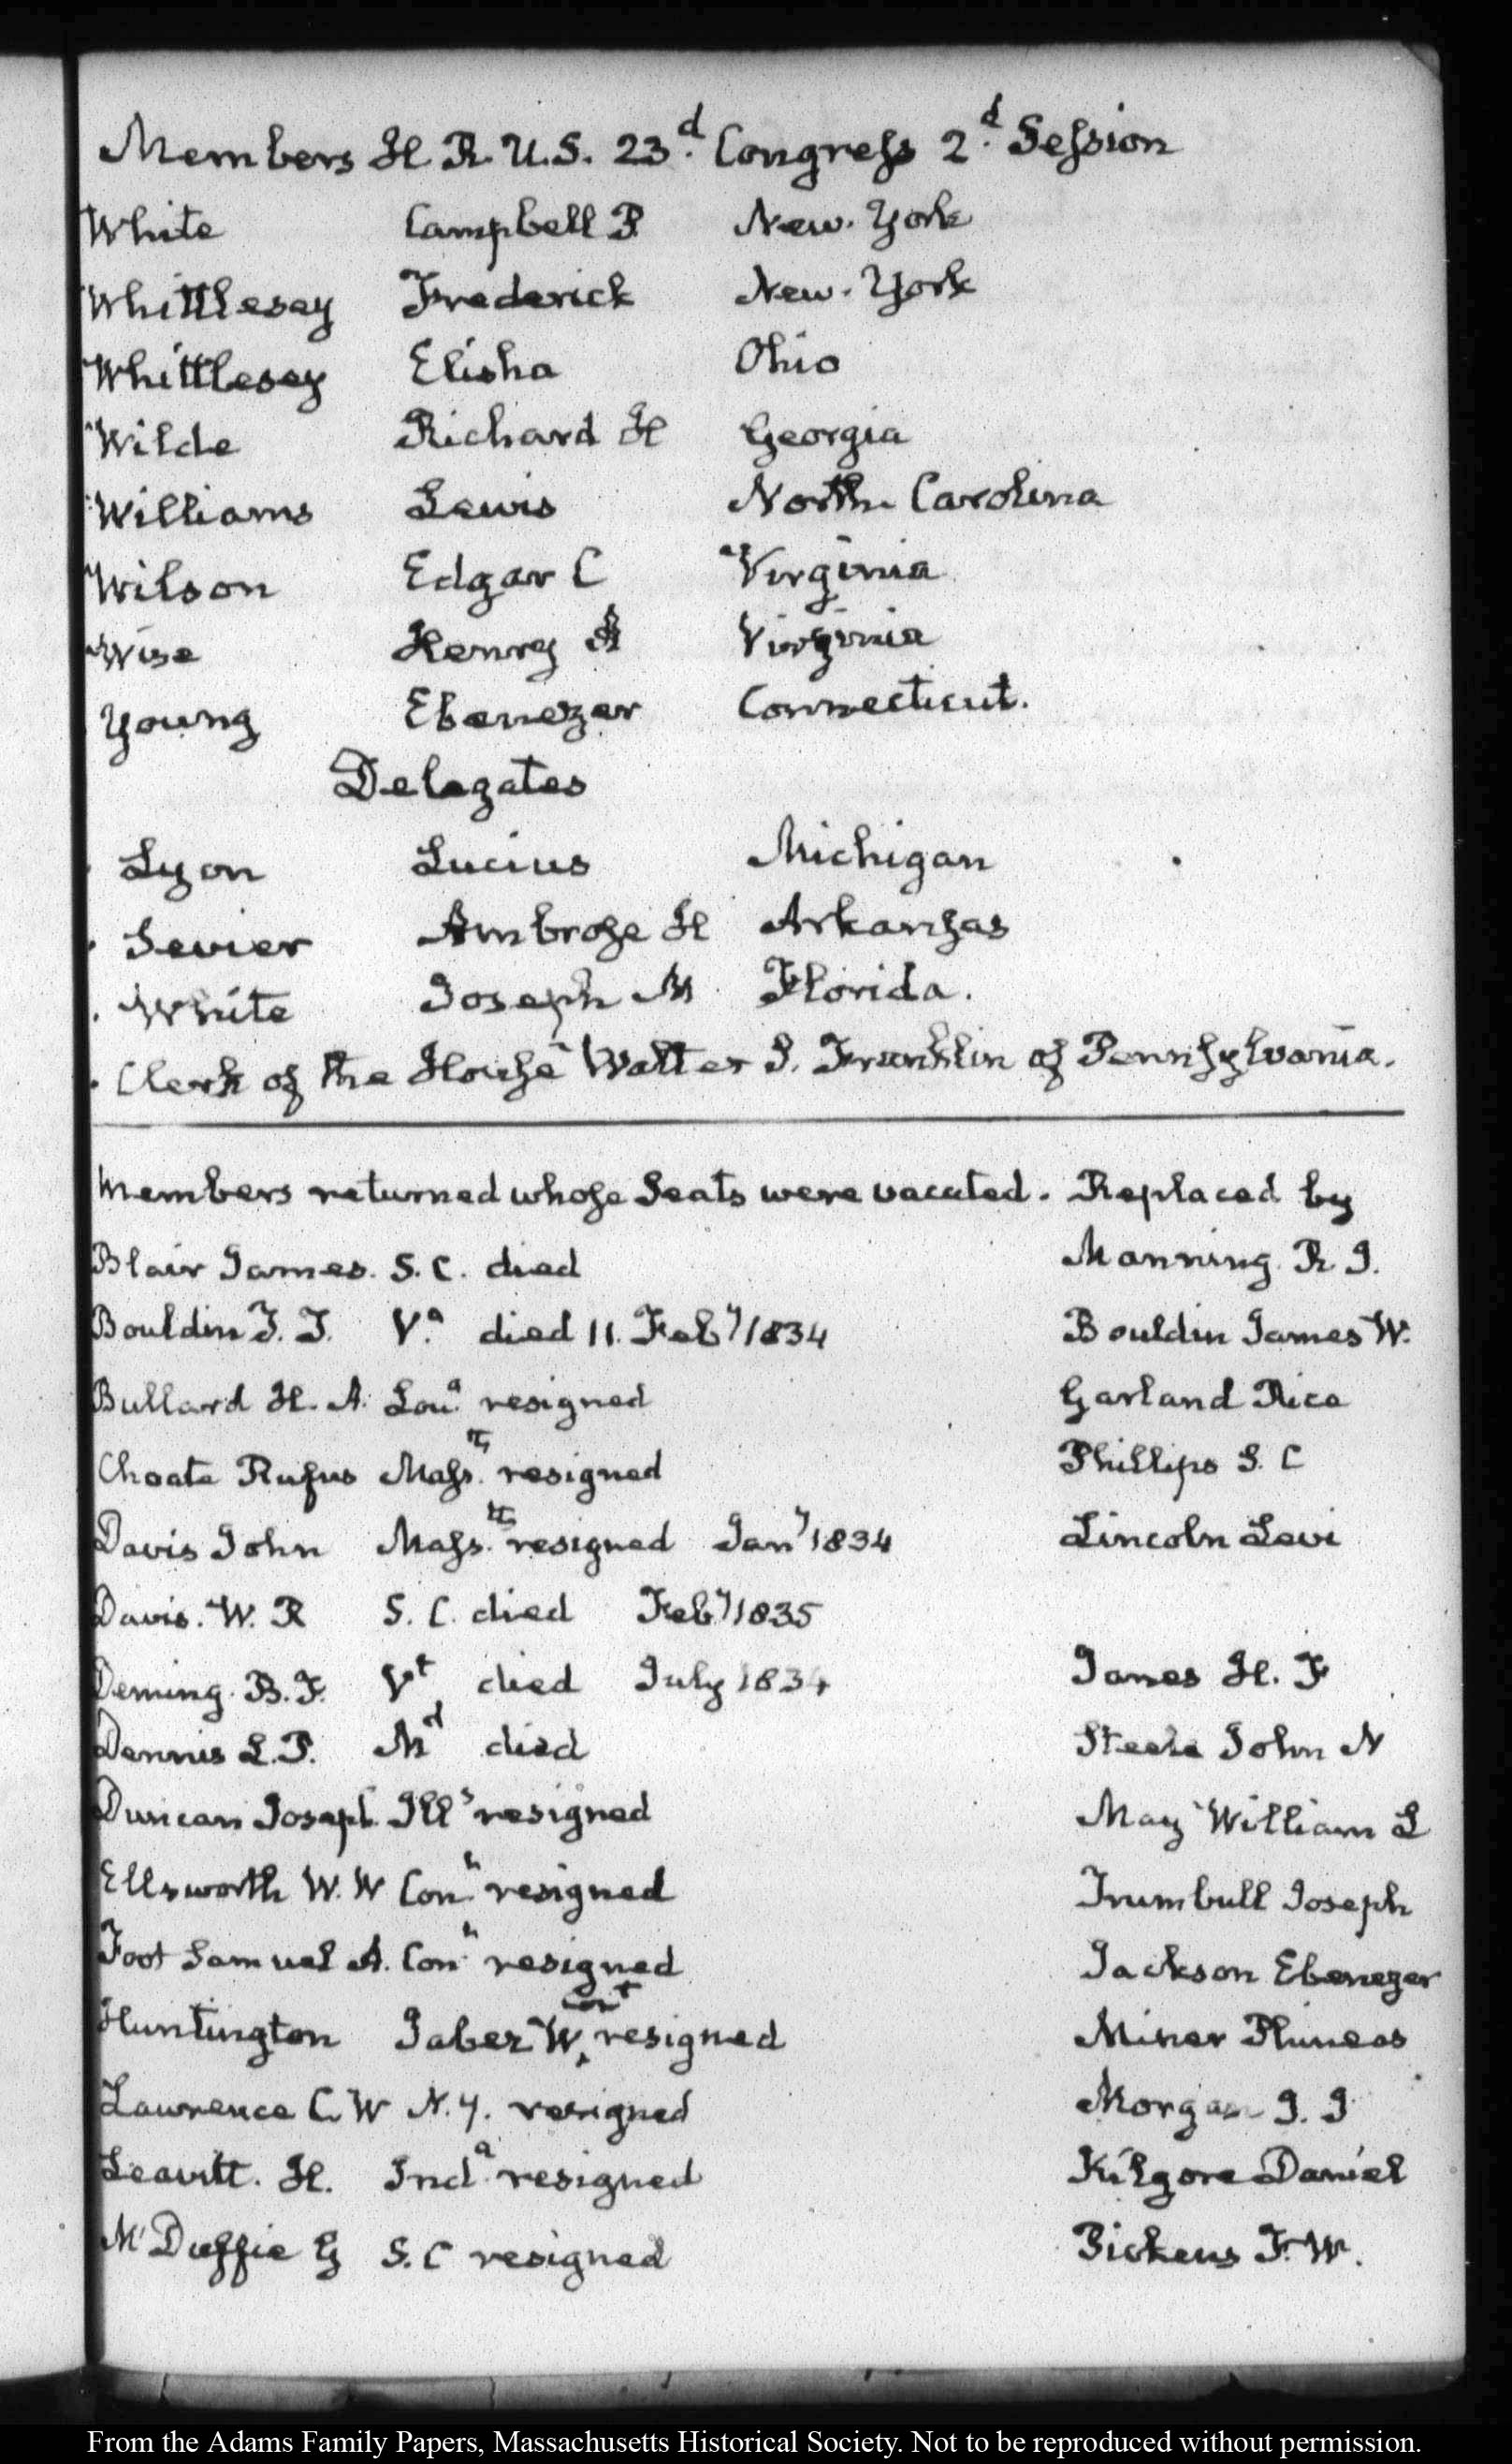 Members H R. U.S. 23.d Congress 2.d Session
White Campbell P. New-York
Whittlesey Frederick New-York
Whittlesey Elisha Ohio
Wilde Richard H Georgia
Williams Lewis North Carolina
Wilson Edgar C Virginia
Wise Henry A Virginia
Young Ebenezer Connecticut.
Delegates
Lyon Lucius Michigan
Sevier Ambrose H Arkansas
White Joseph M Florida.
Clerk of the House Walter S. Franklin of Pennsylvania.
Members returned whose Seats were vacated. Replaced by
Blair James. S. C. died Manning. R I.
Bouldin T. T. V.a died 11. Feby 1834 Bouldin James W.
Bullard H. A. Lou.a resigned Garland Rice
Choate Rufus Mass.tts resigned Phillips S. C
Davis John Mass.tts resigned Jany 1834 Lincoln Levi
Davis. W. R S. C. died Feby 1835
Deming. B. F. Vt died July 1834 Janes H. F
Dennis L. P. Md died Steele John N
Duncan Joseph Ills resigned May William L
Ellsworth W. W Con.n resigned Trumbull Joseph
Foot Samuel A. Con.n resigned Jackson Ebenezer
Huntington Jabez W, Cont resigned Miner Phineas
Lawrence C. W N. Y. resigned Morgan J. J
Leavitt. H. Ind.a resigned Kilgore Daniel
Mc Duffie G S. C resigned Pickens F. W.
From the Adams Family Papers, Massachusetts Historical Society. Not to be reproduced without permission.